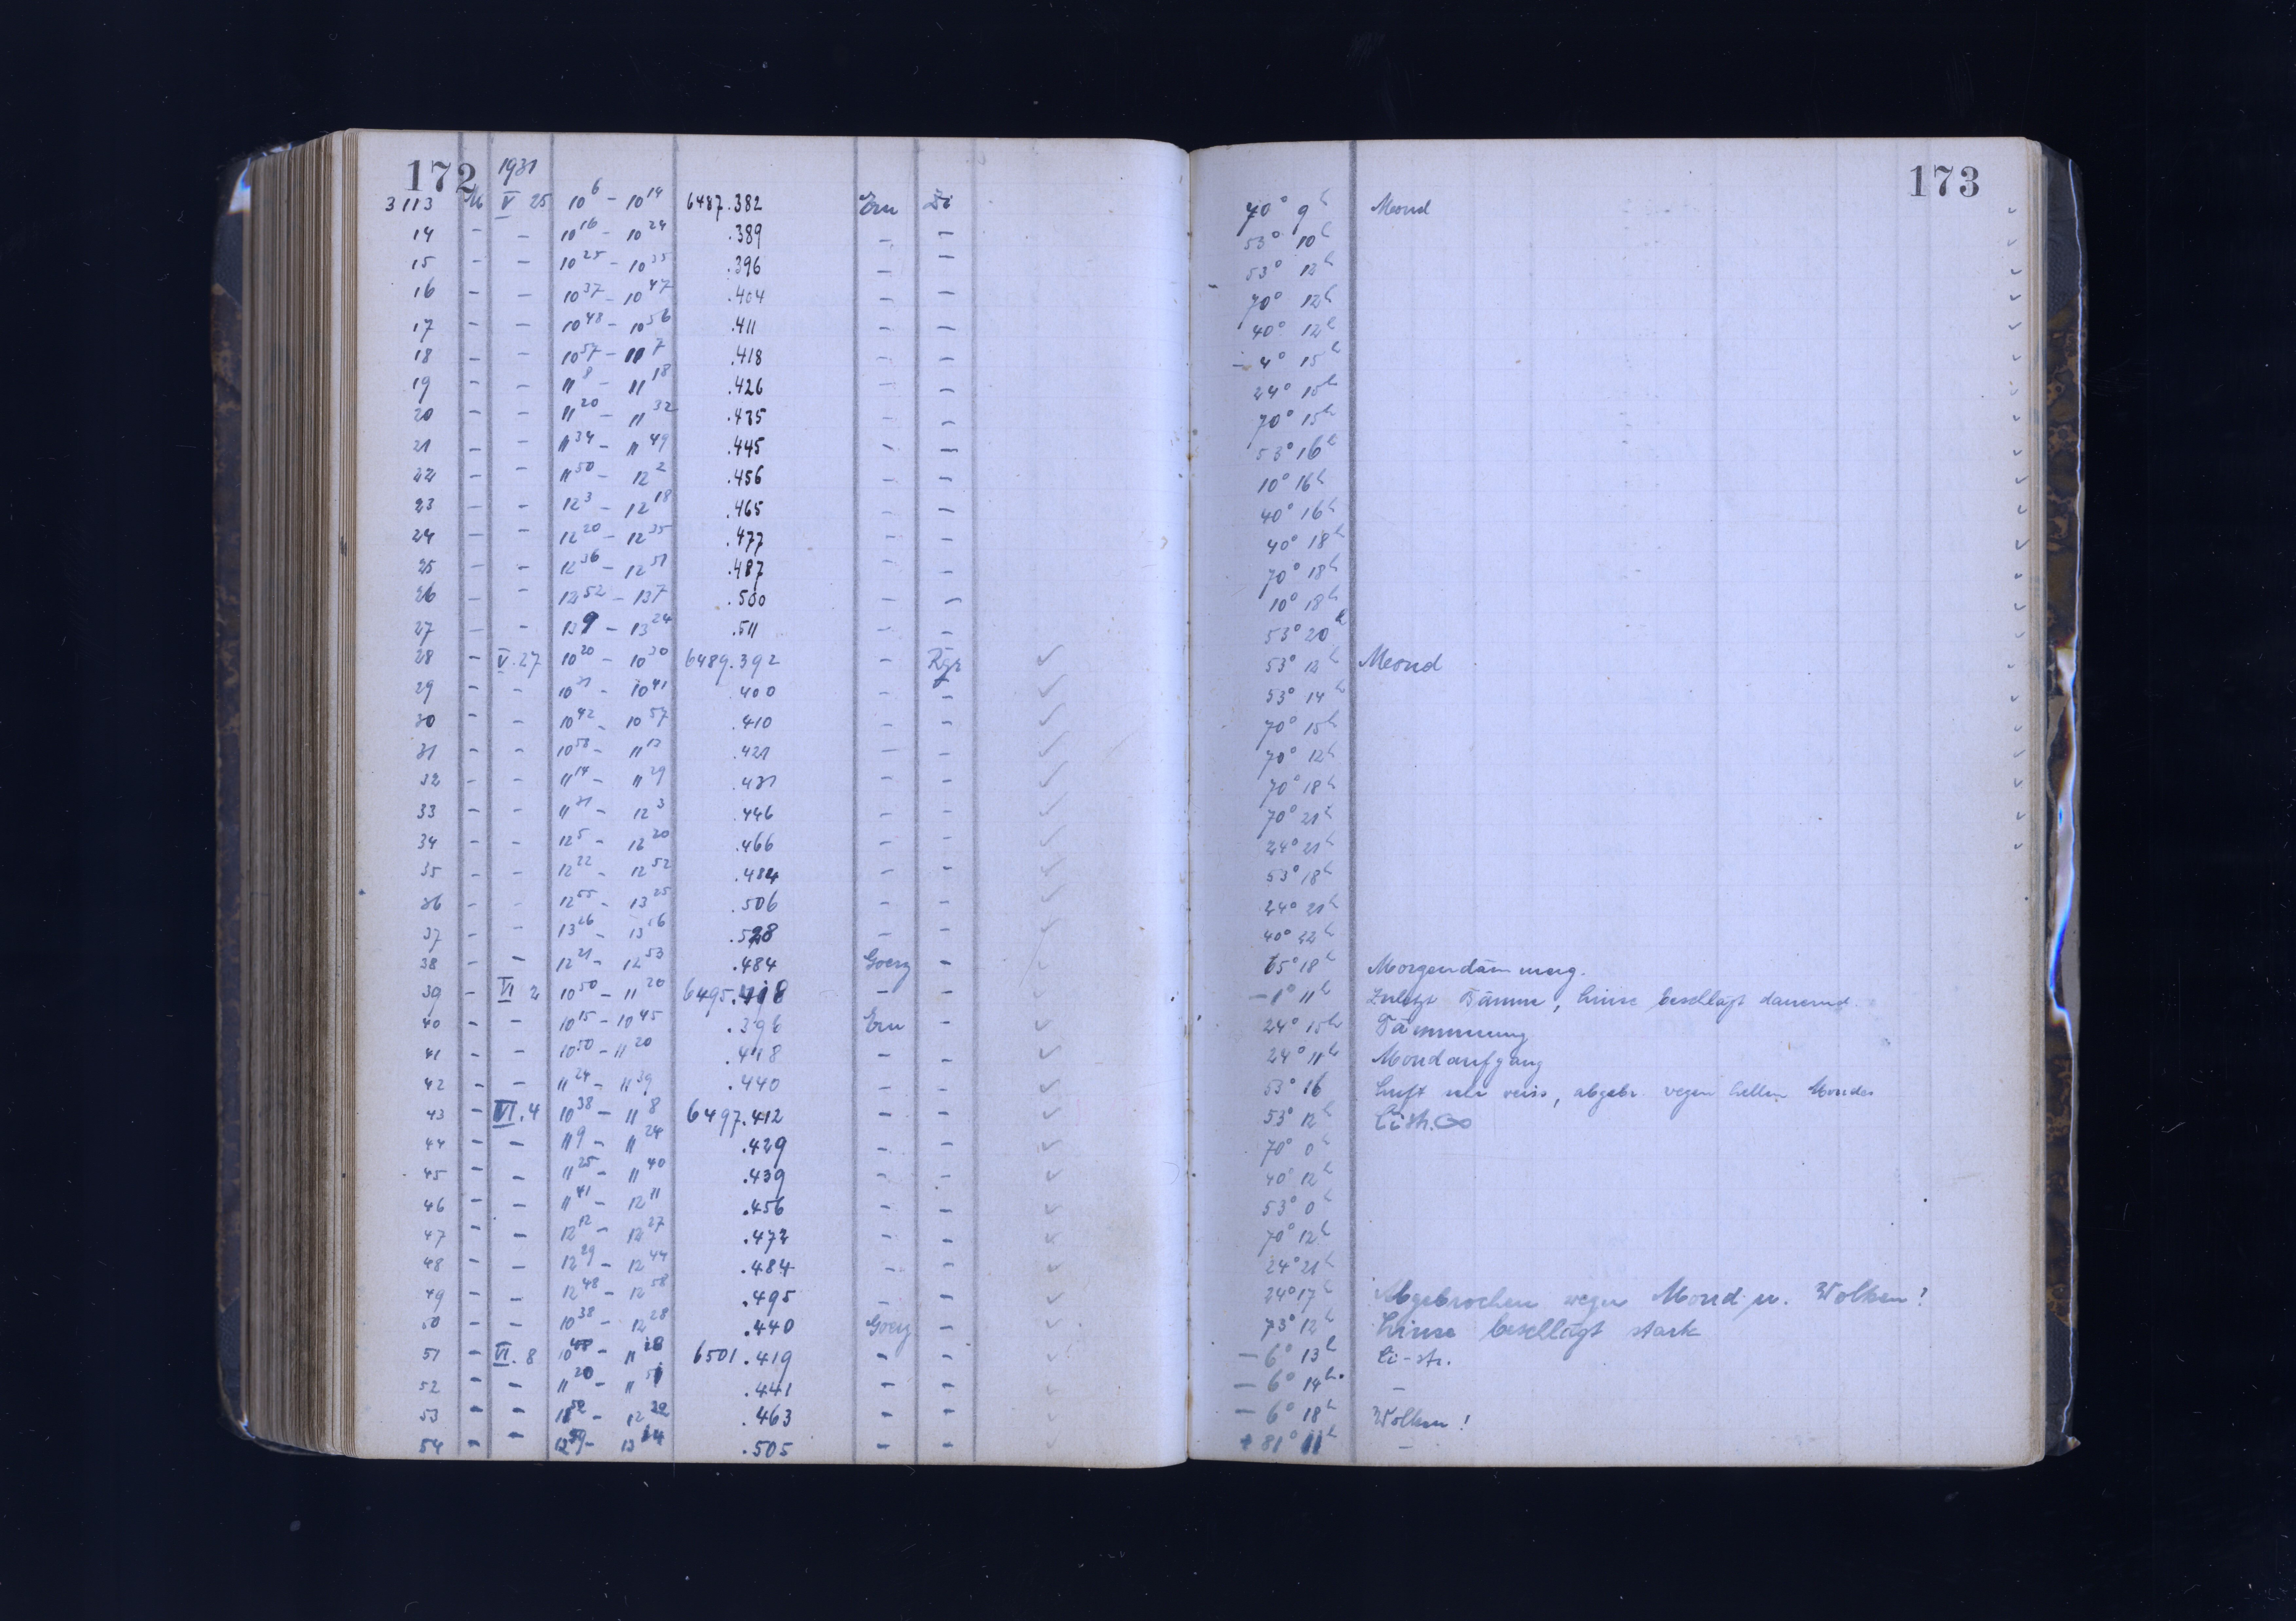 172
1931
3113 M V 25 10 6 – 10 14 6487.382 Ern Di 70° 9h Mond
14 – – 10 16 – 10 24 .389 – – 53° 10h
15 – – 10 25 – 10 35 .396 – – 53° 12h
16 – – 10 37 – 10 47 .404 – – 70° 12h
17 – – 10 48 – 10 56 .411 – – 40° 12h
18 – – 10 57 – 11 7 .418 – – – 4° 15h
19 – – 11 8 – 11 18 .426 – – 24° 15h
20 – – 11 20 – 11 32 .435 – – 70° 15h
21 – – 11 34 – 11 49 .445 – – 53° 16h
22 – – 11 50 – 12 2 .456 – – 10° 16h
23 – – 12 3 – 12 18 .465 – – 40° 16h
24 – – 12 20 – 12 35 .477 – – 40° 18h
25 – – 12 36 – 12 51 .487 – – 70° 18h
26 – – 12 52 – 13 7 .500 – – 10° 18h
27 – – 13 9 – 13 24 .511 – – 53° 20h
28 – V.27 10 20 – 10 30 6489.392 – Rgr 53° 12h Mond
29 – – 10 31 – 10 41 .400 – – 53° 14h
30 – – 10 42 – 10 57 .410 – – 70° 15h
31 – – 10 58 – 11 13 .421 – – 70° 12h
32 – – 11 14 – 11 29 .431 – – 70° 18h
33 – – 11 31 – 12 3 .446 – – 70° 21h
34 – – 12 5 – 12 20 .466 – – 24° 21h
35 – – 12 22 – 12 52 .484 – – 53° 18h
36 – – 12 55 – 13 25 .506 – – 24° 21h
37 – – 13 26 – 13 56 .528 – – 40° 22h
38 – – 12 21 – 12 53 .484 Goerz – 65° 18h Morgendämmerg.
39 – VI 2 10 50 – 11 20 6495.418 – – – 1° 11h Zuletzt Dämm, Linse beschlägt dauernd.
40 – – 10 15 – 10 45 .396 Ern – 24° 15h Dämmerung
41 – – 10 50 – 11 20 .418 – – 24° 11h Mondaufgang
42 – – 11 24 – 11 39 .440 – – 53° 16 Luft sehr weiss, abgebr. wegen hellen Mondes
43 – VI.4 10 38 – 11 8 6497.412 – – 53° 12h Ci Str. ∞
44 – – 11 9 – 11 24 .429 – – 70° 0h
45 – – 11 25 – 11 40 .439 – – 40° 12h
46 – – 11 41 – 12 11 .456 – – 53° 0h
47 – – 12 12 – 12 27 .472 – – 70° 12h
48 – – 12 29 – 12 44 .484 – – 24° 21h
49 – – 12 48 – 12 58 .495 – – 24° 17h Abgebrochen wegen Mond u. Wolken!
50 – – 10 38 – 12 28 .440 Goerz – 73° 12h Linse beschlägt stark
51 – VI.8 10 48 – 11 18 6501.419 – – – 6° 13h Ci-str.
52 – – 11 20 – 11 51 .441 – – – 6° 14h. –
53 – – 11 52 – 12 22 .463 – – – 6° 18h Wolken!
54 – – 12 59 – 13 14 .505 – – + 81° 11h –
173